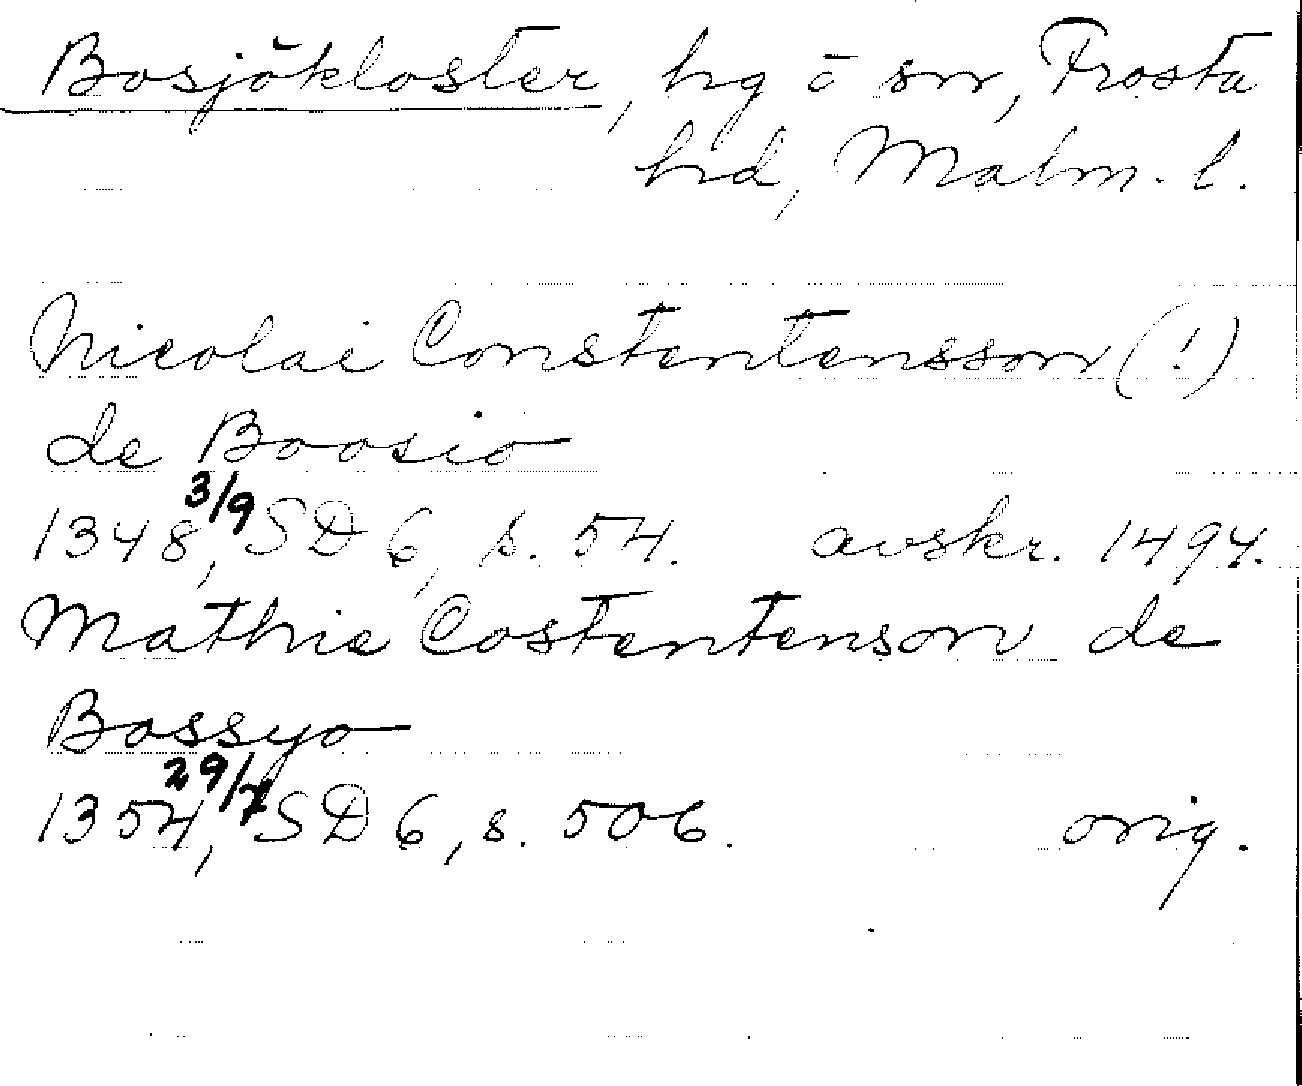 Bosjökloster, hg o sn, Frosta
hd, Malm. l.
Nicolai Constentensson (!)
de Boosio
1348 3/9, SD 6, s. 54. avskr. 1494.
Mathie Costentenson de
Bossyo
1354 29/7, SD 6, s. 506. orig.